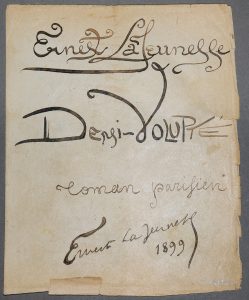 Ernest La Jeunesse
Demi-Volupté
roman parisien
Ernest La Jeunesse
1899